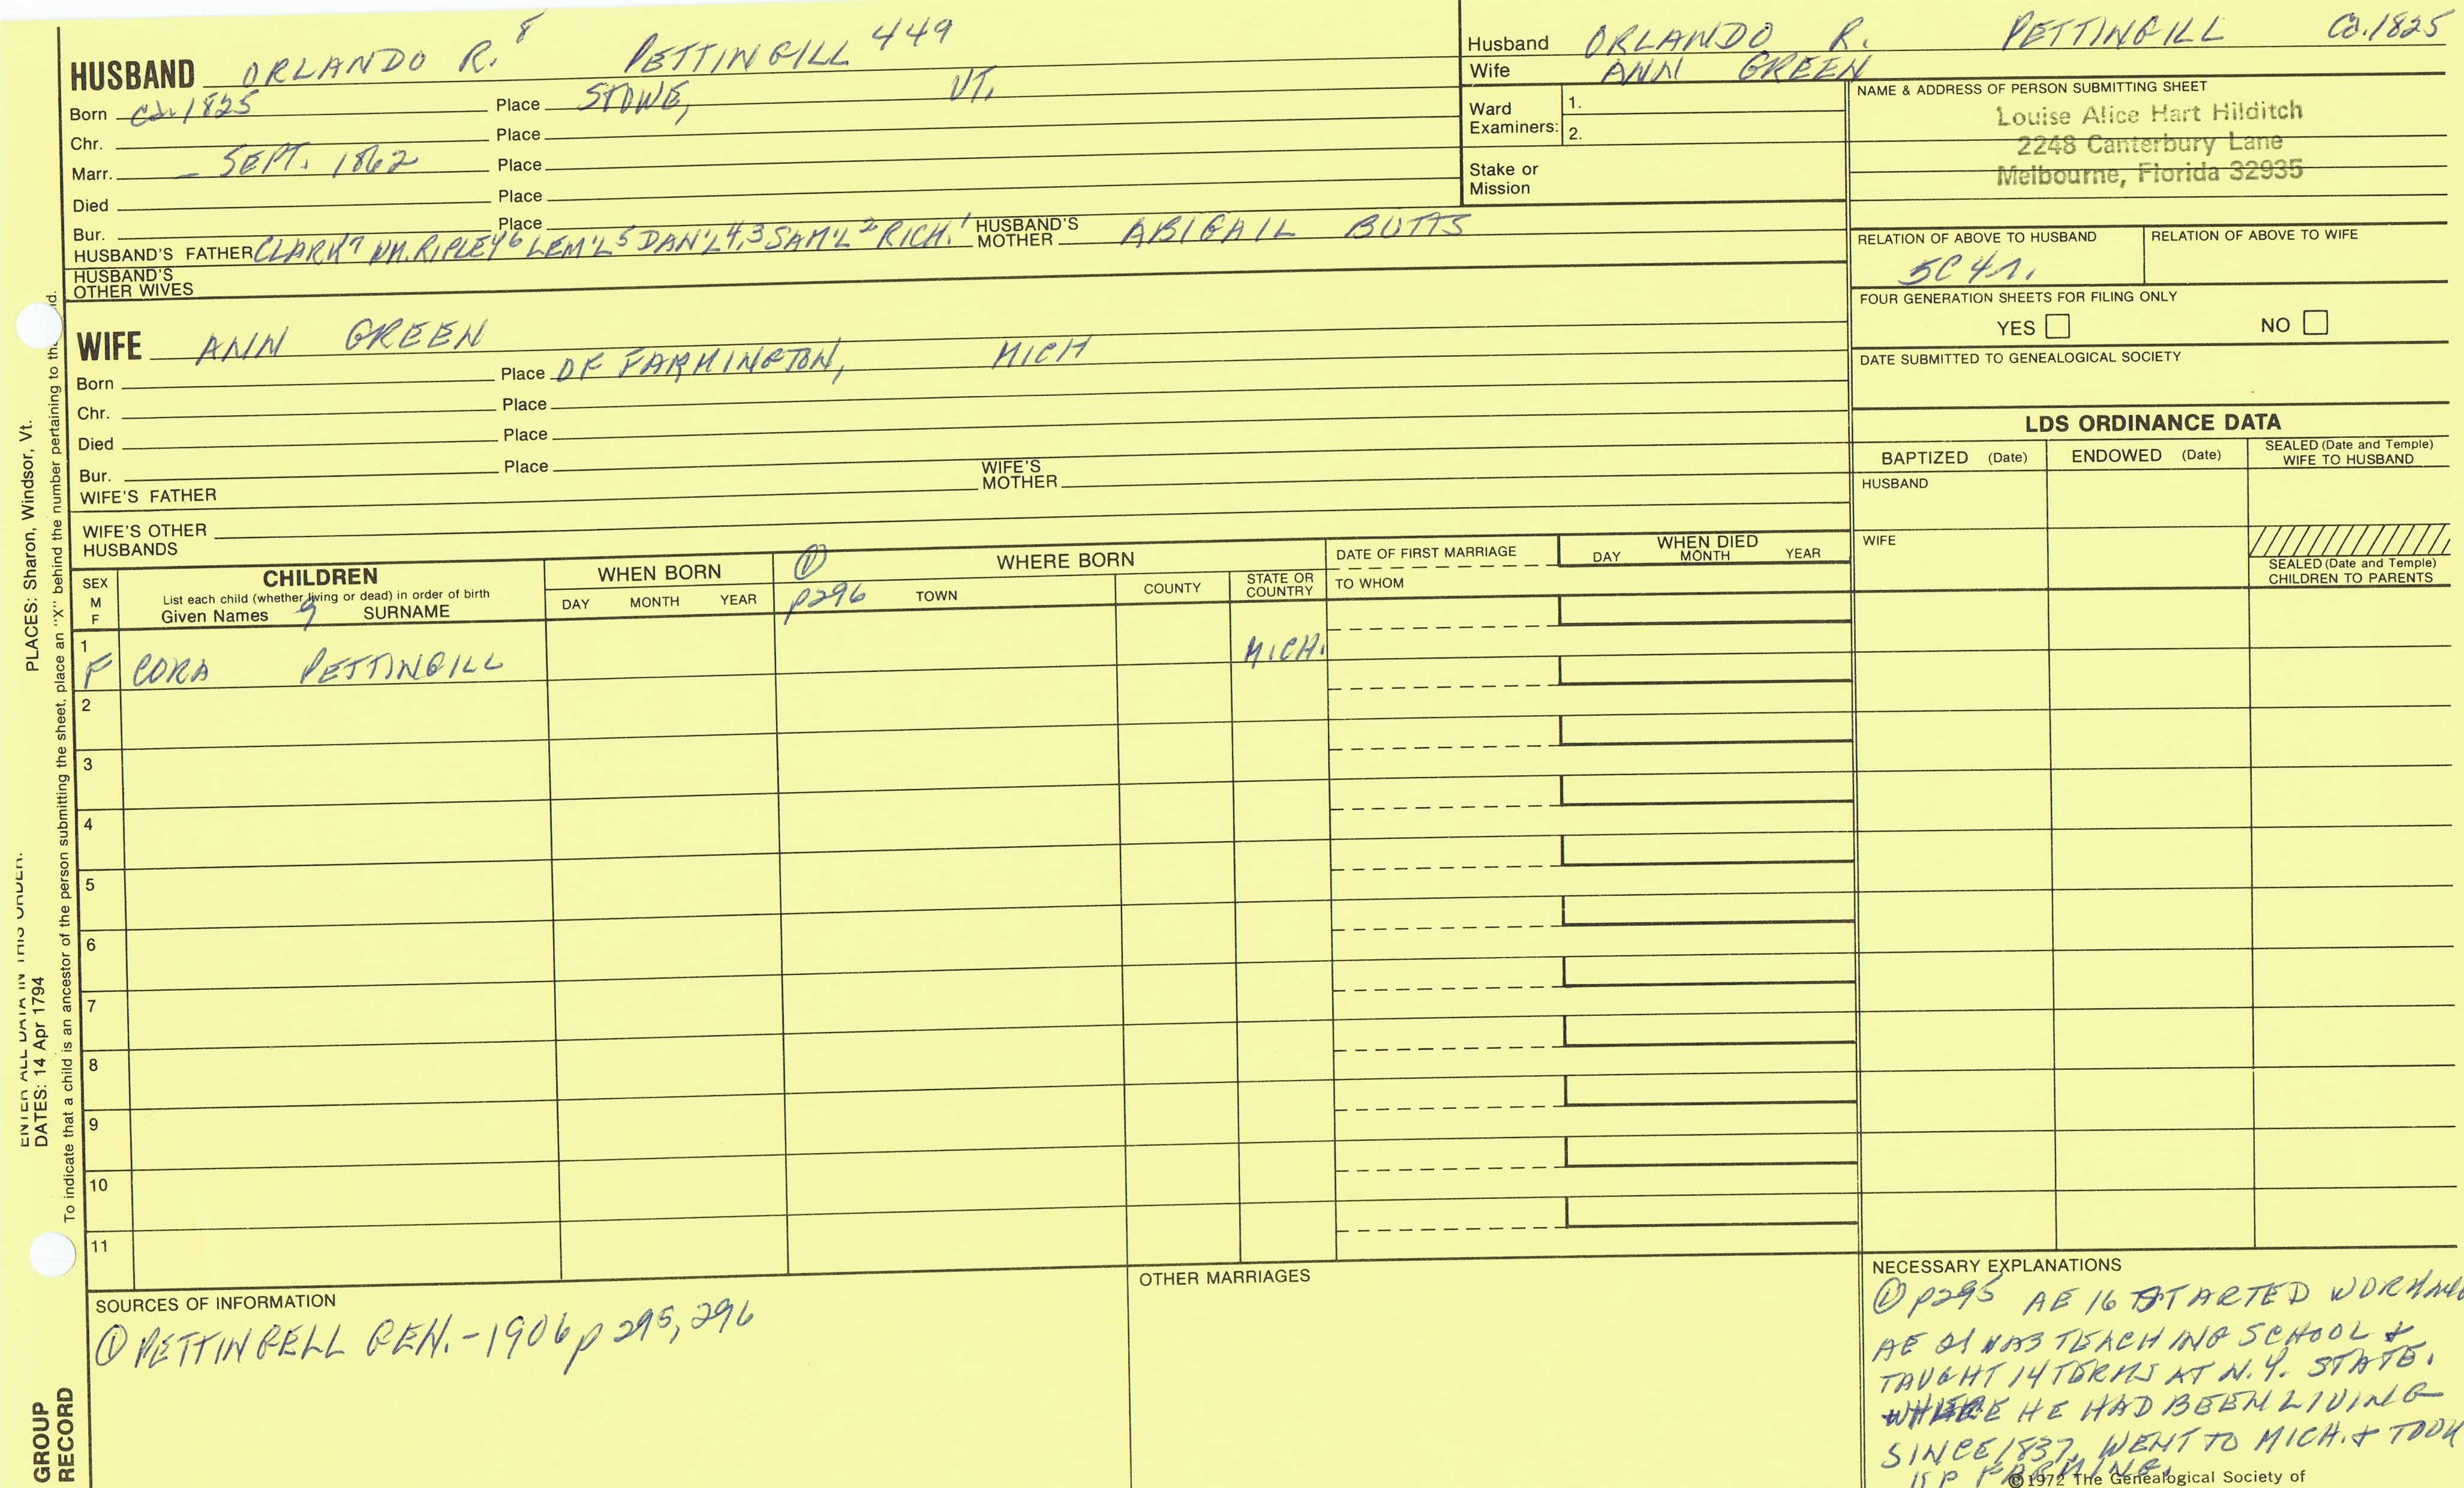 HUSBAND ORLANDO R. 8 PETTINGILL 449
Born ca. 1825 Place STOWE, VT.
Chr. Place
Marr. – SEPT. 1862 Place
Died Place
Bur. Place
HUSBAND'S FATHER CLARK 7 WM. RIPLEY 6 LEM'L 5 DAN'L 4,3 SAM'L 2 RICH. 1 HUSBAND'S MOTHER ABIGAIL BUTTS
HUSBAND'S OTHER WIVES
WIFE ANN GREEN
Born Place OF FARMINGTON, MICH
Chr. Place
Died Place
Bur. Place
WIFE'S FATHER WIFE'S MOTHER
WIFE'S OTHER HUSBANDS
Husband ORLANDO R. PETTINGILL Ca. 1825
Wife ANN GREEN
Ward Examiners: 1.
2.
Stake or Mission
NAME & ADDRESS OF PERSON SUBMITTING SHEET
Louise Alice Hart Hilditch
2248 Canterbury Lane
Melbourne, Florida 32935
RELATION OF ABOVE TO HUSBAND RELATION OF ABOVE TO WIFE
5C 4r.
FOUR GENERATION SHEETS FOR FILING ONLY
YES NO
DATE SUBMITTED TO GENEALOGICAL SOCIETY
LDS ORDINANCE DATA
BAPTIZED (Date) ENDOWED (Date) SEALED (Date and Temple) WIFE TO HUSBAND
HUSBAND
WIFE
SEALED (Date and Temple) CHILDREN TO PARENTS
SEX M F
CHILDREN
List each child (whether living or dead) in order of birth
Given Names 9 SURNAME
WHEN BORN
DAY MONTH YEAR
① p296
WHERE BORN
TOWN COUNTY STATE OR COUNTRY
DATE OF FIRST MARRIAGE
TO WHOM
WHEN DIED
DAY MONTH YEAR
1 F CORA PETTINGILL MICH.
2
3
4
5
6
7
8
9
10
11
SOURCES OF INFORMATION
① PETTINGELL GEN. - 1906 p 295, 296
OTHER MARRIAGES
NECESSARY EXPLANATIONS
① p295 AE 16 STARTED WORK
AE 21 WAS TEACHING SCHOOL &
TAUGHT 14 TERMS AT N.Y. STATE.
WHERE HE HAD BEEN LIVING
SINCE 1837, WENT TO MICH. & TOOK
UP FARMING.
©1972 The Genealogical Society of
PLACES: Sharon, Windsor, Vt.
ENTER ALL DATA IN THIS ORDER:
DATES: 14 Apr 1794
To indicate that a child is an ancestor of the person submitting the sheet, place an "X" behind the number pertaining to
GROUP
RECORD